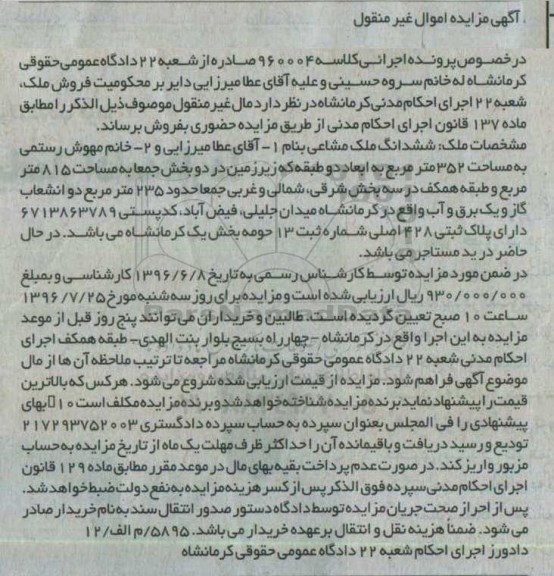 . آگهی مزایده اموال غیر منقول
در خصوص پرونده اجرائی کلاسه ۹۶۰۰۰۴ صادره از شعبه ۲۲ دادگاه عمومی حقوقی
کرمانشاه له خانم سروه حسینی و علیه آقای عطا میرزایی دایر بر محکومیت فروش ملک،
شعبه ۲۲ اجرای احکام مدنی کرمانشاه در نظر دارد مال غیر منقول موصوف ذیل الذکر را مطابق
ماده ۱۳۷ قانون اجرای احکام مدنی از طریق مزایده حضوری بفروش برساند.
مشخصات ملک: ششدانگ ملک مشاعی بنام ۱- آقای عطا میرزایی و ۲- خانم مهوش رستمی
به مساحت ۳۵۲ متر مربع به ابعاد دو طبقه که زیرزمین در دو بخش جمعا به مساحت ۸۱۵ متر
مربع و طبقه همکف در سه بخش شرقی، شمالی و غربی جمعا حدود ۲۳۵ متر مربع دو انشعاب
گاز و یک برق و آب واقع در کرمانشاه میدان جلیلی، فیض آباد، کدپستی ۶۷۱۳۸۶۳۷۸۹
دارای پلاک ثبتی ۴۲۸ اصلی شماره ثبت ۱۳ حومه بخش یک کرمانشاه می باشد. در حال
حاضر در ید مستاجر می باشد.
در ضمن مورد مزایده توسط کارشناس رسمی به تاریخ ۱۳۹۶/۶/۸ کارشناسی و بمبلغ
۹۳۰/۰۰۰/۰۰۰ ریال ارزیابی شده است و مزایده برای روز سه شنبه مورخ ۱۳۹۶/۷/۲۵
ساعت ۱۰ صبح تعیین گردیده است. طالبین و خریداران می توانند پنج روز قبل از موعد
مزایده به این اجرا واقع در کرمانشاه - چهارراه بسیج بلوار بنت الهدی- طبقه همکف اجرای
احکام مدنی شعبه ۲۲ دادگاه عمومی حقوقی کرمانشاه مراجعه تا ترتیب ملاحظه آن ها از مال
موضوع آگهی فراهم شود. مزایده از قیمت ارزیابی شده شروع می شود. هر کس که بالاترین
قیمت را پیشنهاد نماید برنده مزایده شناخته خواهد شد و برنده مزایده مکلف است ۱۰ بهای
پیشنهادی را فی المجلس بعنوان سپرده به حساب سپرده دادگستری ۲۱۷۲۹۳۷۵۲۰۰۳
تودیع و رسید دریافت و باقیمانده آن را حداکثر ظرف مهلت یک ماه از تاریخ مزایده به حساب
مزبور واریز کند. در صورت عدم پرداخت بقیه بهای مال در موعد مقرر مطابق ماده ۱۲۹ قانون
اجرای احکام مدنی سپرده فوق الذکر پس از کسر هزینه مزایده به نفع دولت ضبط خواهد شد.
پس از احراز صحت جریان مزایده توسط دادگاه دستور صدور انتقال سند به نام خریدار صادر
می شود. ضمناً هزینه نقل و انتقال بر عهده خریدار می باشد. ۵۸۹۵/م الف/۱۲
دادورز اجرای احکام شعبه ۲۲ دادگاه عمومی حقوقی کرمانشاه